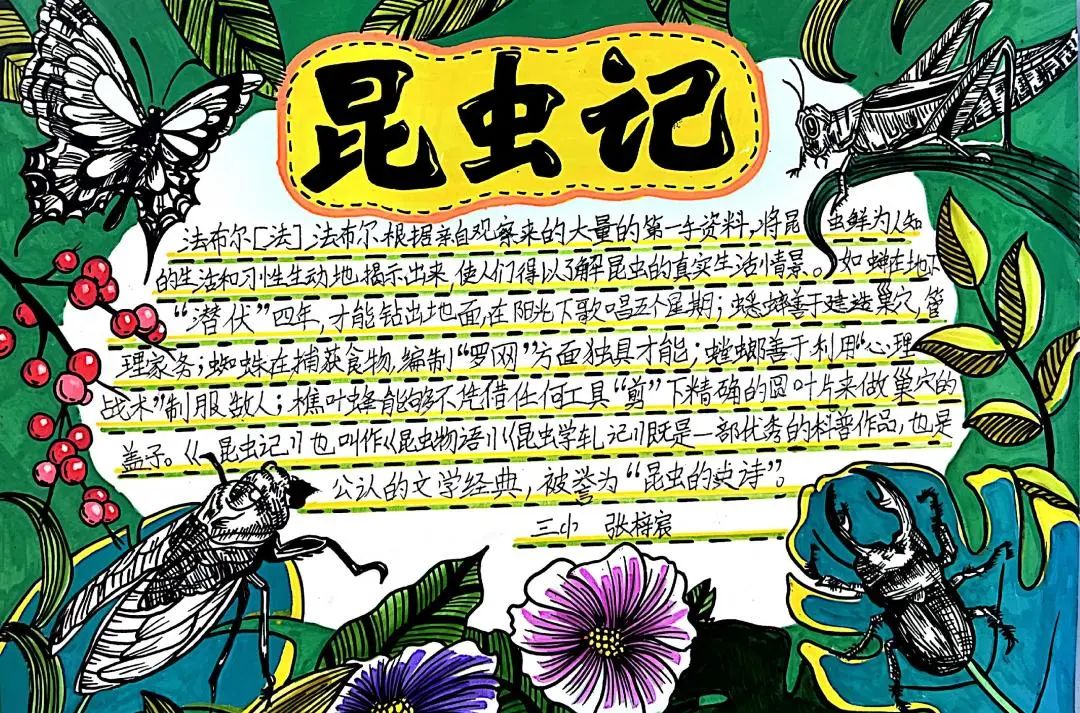 昆虫记
法布尔[法]法布尔根据亲自观察来的大量的第一手资料,将昆虫鲜为人知
的生活和习性生动地揭示出来,使人们得以了解昆虫的真实生活情景。如蝉在地下
“潜伏”四年,才能钻出地面,在阳光下歌唱五个星期;蟋蟀善于建造巢穴,管
理家务;蜘蛛在捕获食物,编制“罗网”方面独具才能;螳螂善于利用“心理
战术”制服敌人;樵叶蜂能够不凭借任何工具“剪”下精确的圆叶片来做巢穴的
盖子。《昆虫记》也叫作《昆虫物语》《昆虫学札记》既是一部优秀的科普作品,也是
公认的文学经典,被誉为“昆虫的史诗”。
三小 张梓宸